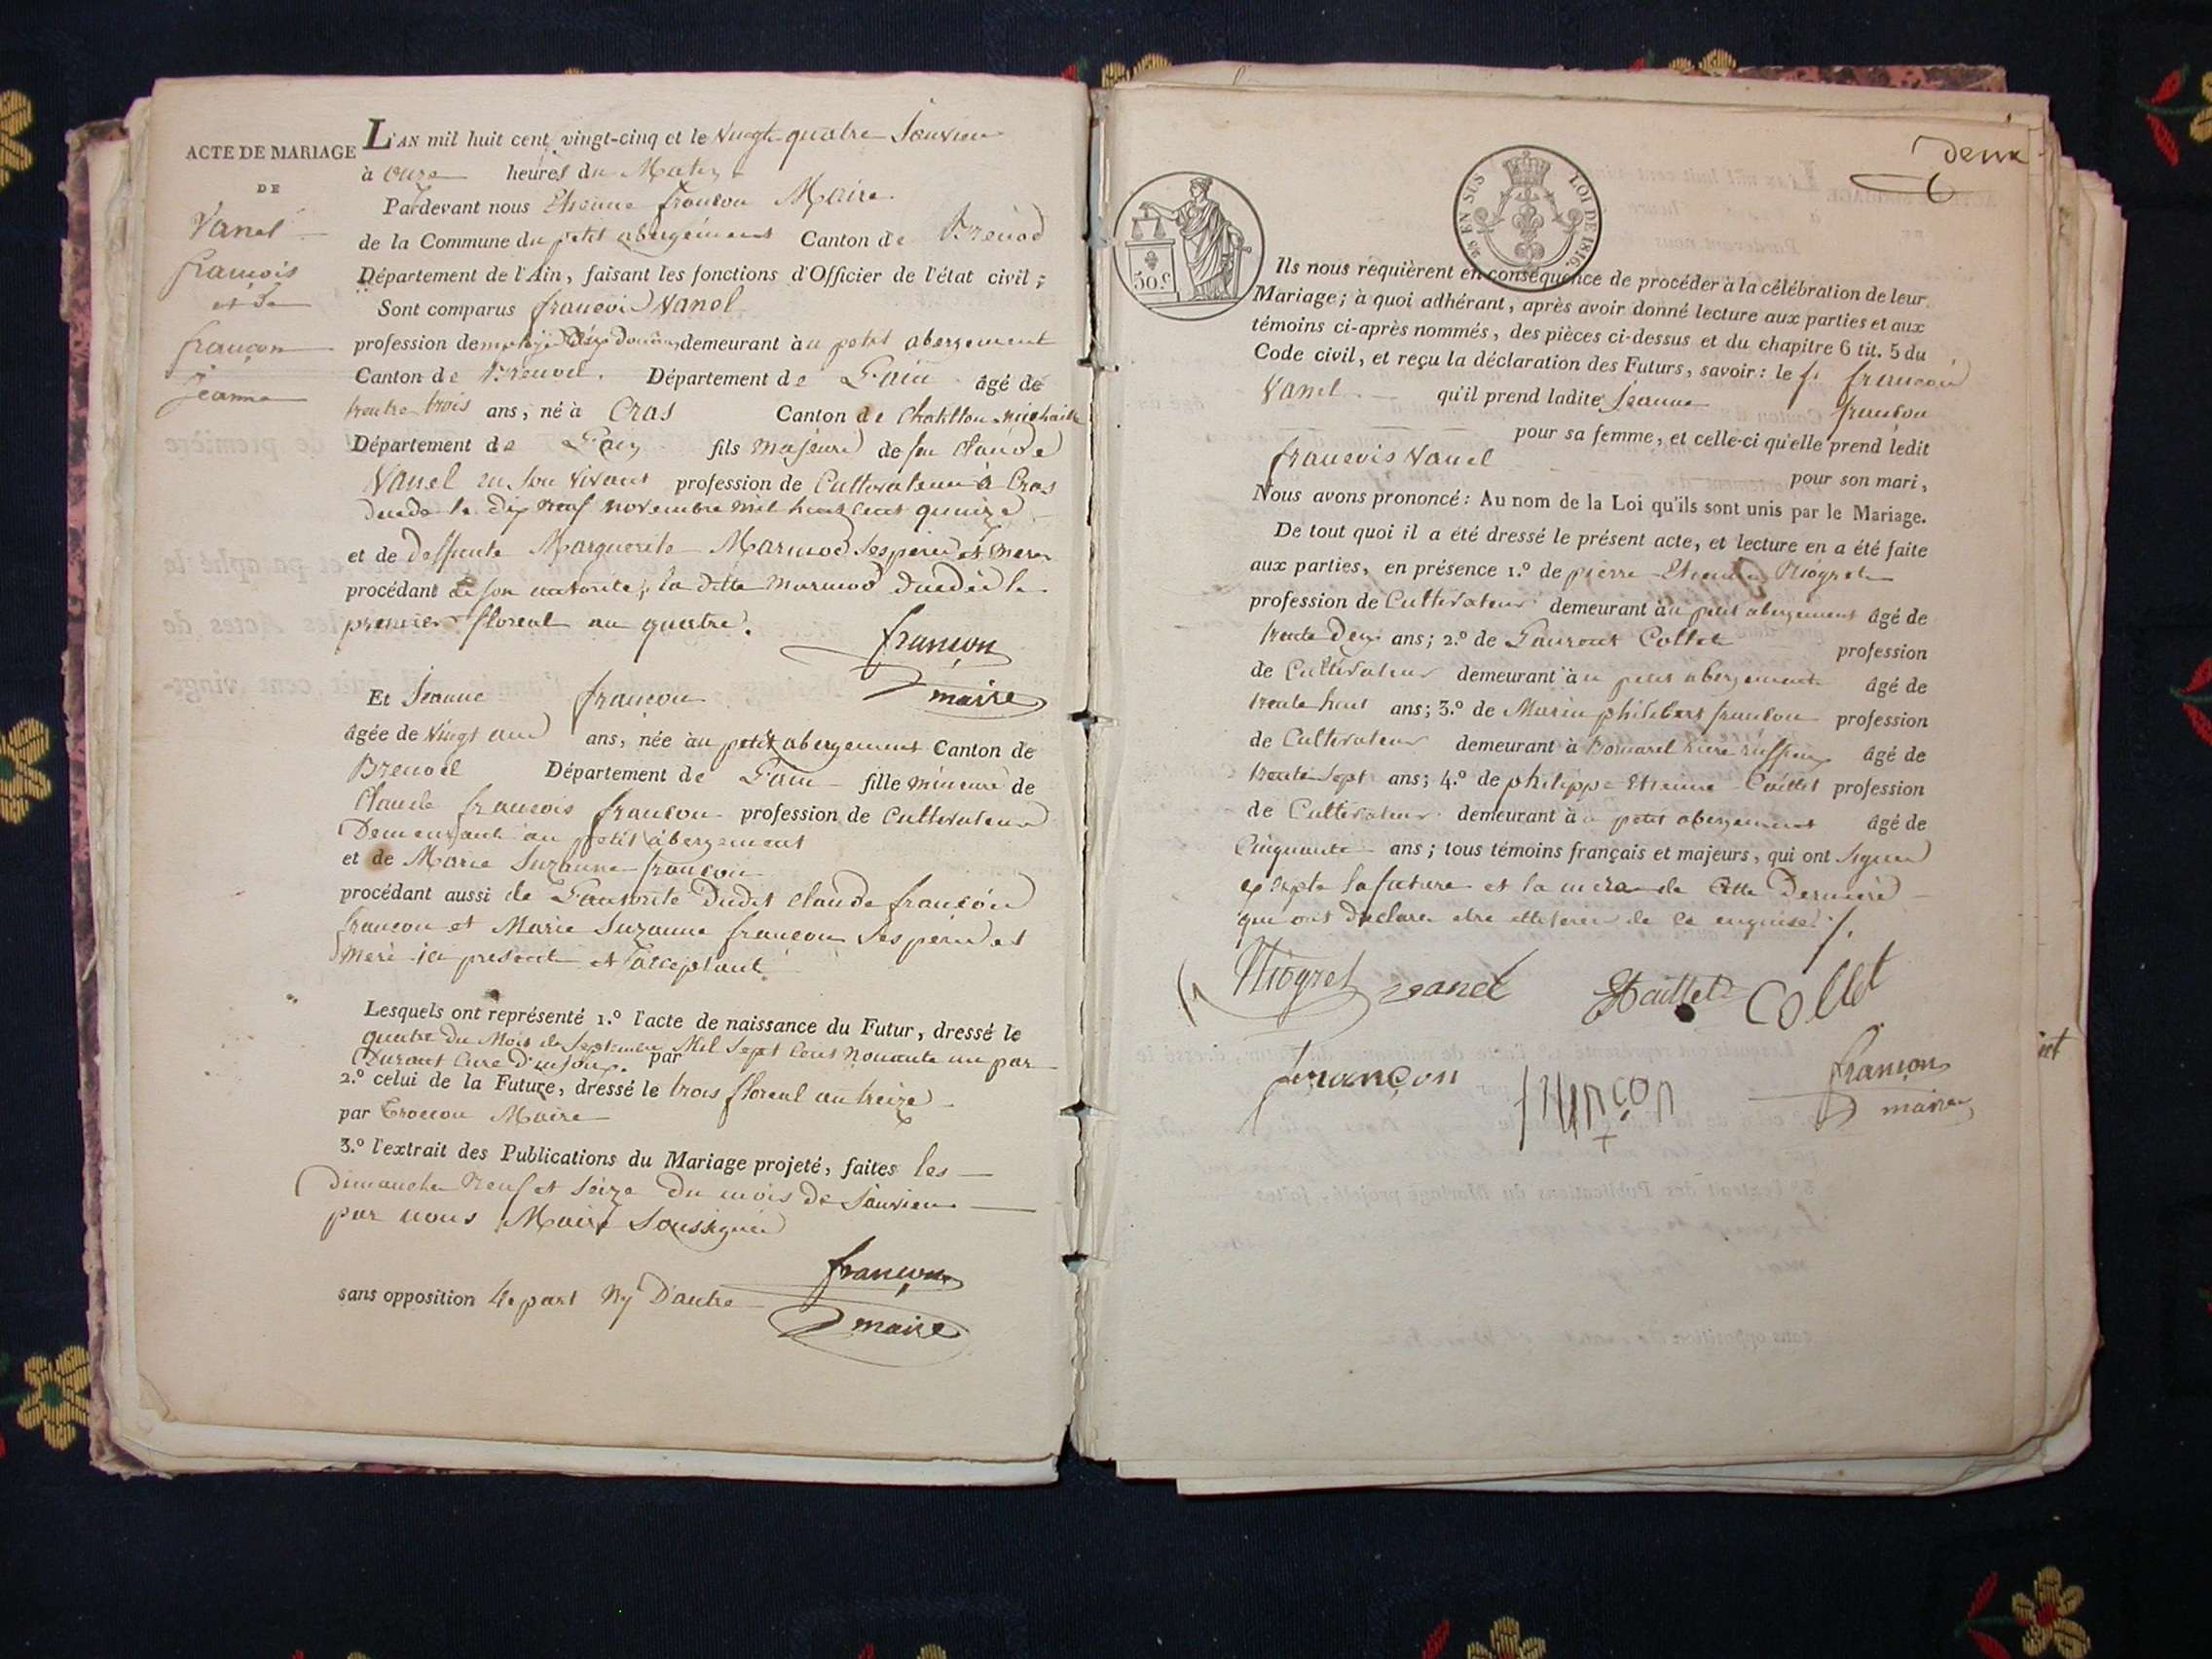 ACTE DE MARIAGE
DE
Vanel
françois
et de
françon
jeanne
L'AN mil huit cent vingt-cinq et le vingt quatre Janvier
à onze heures du Matin
Pardevant nous Etienne françon Maire
de la Commune du petit abergement Canton de Brénod
Département de l'Ain, faisant les fonctions d'Officier de l'état civil;
Sont comparus françois Vanel
profession demeurant àu petit abergement
Canton de Brenod. Département de L'ain âgé de
trente trois ans, né à Cras Canton de Chatillon michaille
Département de L'ain fils majeure de feu Claude
Vanel en son vivant profession de Cultivateur à Cras
décédé le dix neuf novembre mil huit cent quinze
et de deffunte Marguerite Marmod ses père et mere
procédant de son autorité; la ditte Marmod décédée le
premier floreal an quatre.
françon
maire
Et Jeanne françon
âgée de vingt ans, née àu petit abergement Canton de
Brenod Département de L'ain fille mineure de
Claude françois françon profession de Cultivateur
Demeurant au petit abergement
et de Marie Suzanne françon
procédant aussi de L'autorité dudit Claude françois
françon et Marie Suzanne françon ses père et
mere ici present et acceptant
Lesquels ont représenté 1.º l'acte de naissance du Futur, dressé le
quatre du Mois de Septembre Mil Sept Cent nonante un par
Durant Curé par
2.º celui de la Future, dressé le trois floreal an treize
par Maire
3.º l'extrait des Publications du Mariage projeté, faites les
dimanche neuf et seize du mois de Janvier
par nous Maire Soussigné
françon
sans opposition de part ny D'autre
maire
deux
50.c
25 EN SUS LOI DE 1816.
Ils nous requièrent en conséquence de procéder à la célébration de leur
Mariage; à quoi adhérant, après avoir donné lecture aux parties et aux
témoins ci-après nommés, des pièces ci-dessus et du chapitre 6 tit. 5 du
Code civil, et reçu la déclaration des Futurs, savoir: le s. françois
Vanel qu'il prend ladite Jeanne françon
pour sa femme, et celle-ci qu'elle prend ledit
françois Vanel
pour son mari,
Nous avons prononcé: Au nom de la Loi qu'ils sont unis par le Mariage.
De tout quoi il a été dressé le présent acte, et lecture en a été faite
aux parties, en présence 1.º de pierre Etienne Niogret
profession de Cultivateur demeurant àu petit abergement âgé de
trente deux ans; 2.º de Laurent Collet profession
de Cultivateur demeurant àu petit abergement âgé de
trente huit ans; 3.º de Marin philibert françon profession
de Cultivateur demeurant à âgé de
trente sept ans; 4.º de philippe Etienne Caillet profession
de Cultivateur demeurant àu petit abergement âgé de
Cinquante ans; tous témoins français et majeurs, qui ont signé
excepte la future et la mere de Cette Derniere
qui ont declaré etre de ce enquise ./.
Niogret Vanel Caillet Collet
françon françon françon
maire